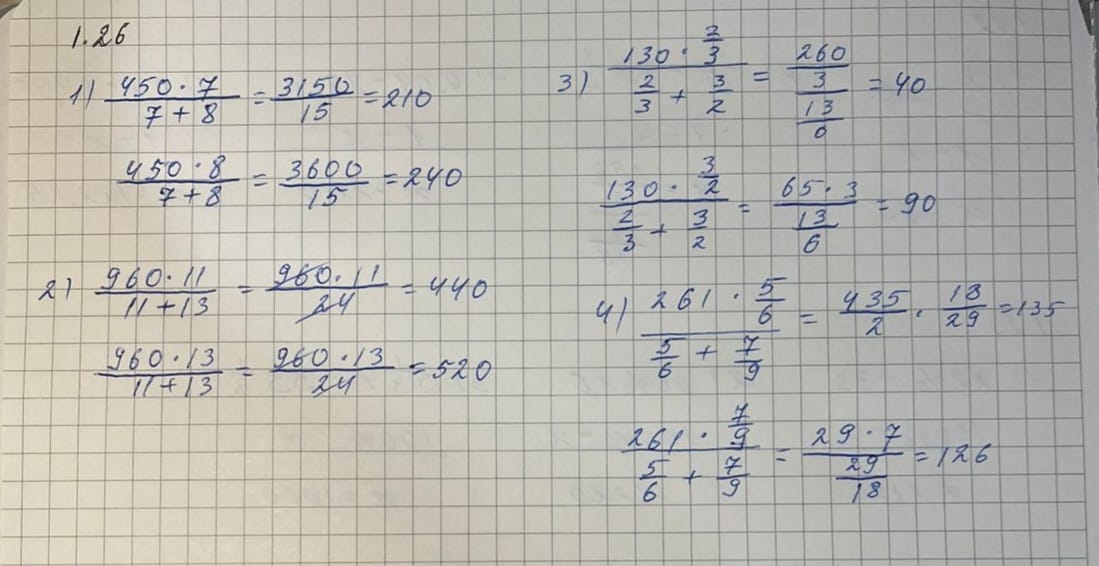 1.26
1) (450 · 7)/(7 + 8) = 3150/15 = 210
(450 · 8)/(7 + 8) = 3600/15 = 240
2) (960 · 11)/(11 + 13) = (960 · 11)/24 = 440
(960 · 13)/(11 + 13) = (960 · 13)/24 = 520
3) (130 · 2/3)/(2/3 + 3/2) = (260/3)/(13/6) = 40
(130 · 3/2)/(2/3 + 3/2) = (65 · 3)/(13/6) = 90
4) (261 · 5/6)/(5/6 + 7/9) = 435/2 · 18/29 = 135
(261 · 7/9)/(5/6 + 7/9) = (29 · 7)/(29/18) = 126